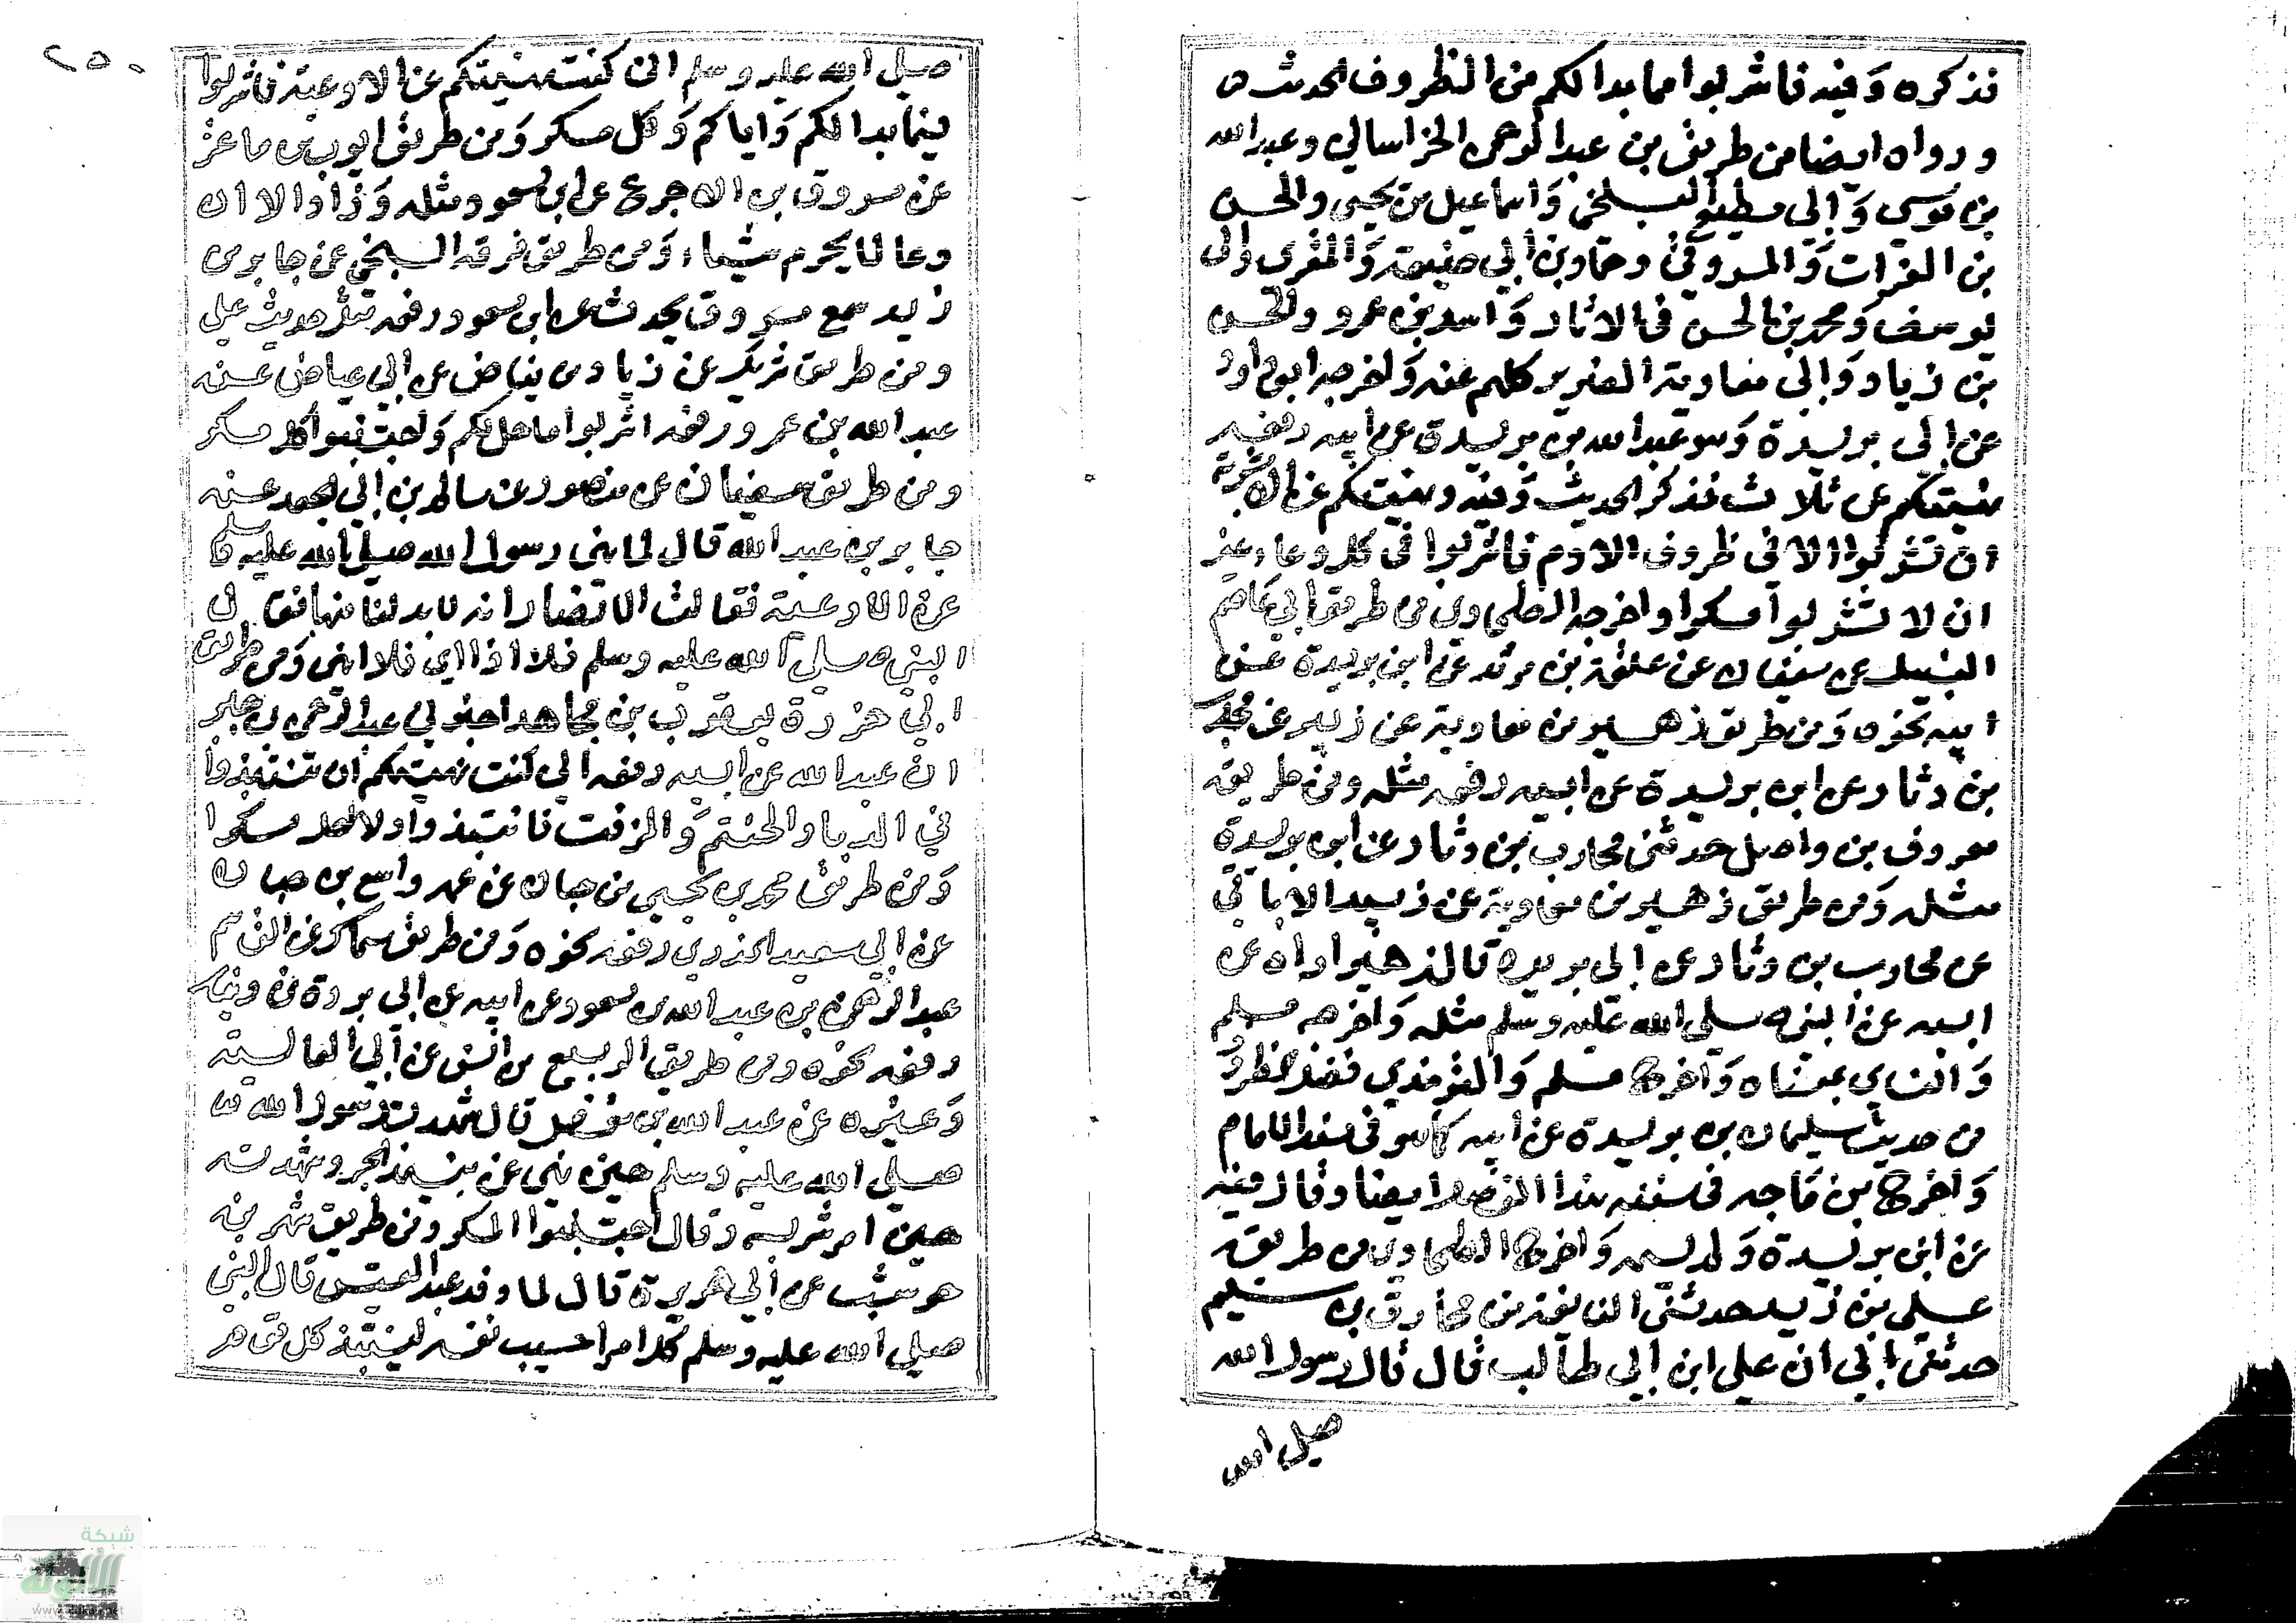 فذكره وفيه فاشربوا مما بدا لكم من الظروف الحديث
ورواه ايضا من طريق بن عبد الرحمن الخراساني وعبد الله
بن موسى وابي مطيع البلخي واسماعيل بن يحيى والحسن
بن الفرات والمسروقي وحماد بن ابي حنيفة والمقري وابي
يوسف ومحمد بن الحسن في الاثار واسد بن عمرو والحسن
بن زياد وابي معاوية الضرير كلهم عنه واخرجه ابو داود
عن ابي بريدة وهو عبد الله بن بريدة عن ابيه رفعه
نهيتكم عن ثلاث فذكر الحديث وفيه ونهيتكم عن الاشربة
ان تشربوا الا في ظروف الادم فاشربوا في كل وعاء غير
ان لا تشربوا مسكرا واخرجه الطحاوي من طريق ابي عاصم
النبيل عن سفيان عن علقمة بن مرثد عن ابن بريدة عن
ابيه نحوه ومن طريق زهير بن معاوية عن زبيد عن محارب
بن دثار عن ابن بريدة عن ابيه رفعه مثله ومن طريق
معروف بن واصل حدثني محارب بن دثار عن ابن بريدة
مثله ومن طريق زهير بن معاوية عن زبيد الايامي
عن محارب بن دثار عن ابي بريدة قال زهير اراه عن
ابيه عن النبي صلى الله عليه وسلم مثله واخرجه مسلم
والنساي بمعناه واخرج مسلم والترمذي فضل الظروف
من حديث سليمان بن بريدة عن ابيه كما هو في مسند الامام
واخرج بن ماجه في سننه هذا الفصل ايضا وقال فيه
عن ابن بريدة ولم يسمه واخرج الطحاوي من طريق
علي بن زيد حدثني النابغة بن مخارق بن سليم
حدثني ابي ان علي ابن ابي طالب قال قال رسول الله
صلى الله
٢٥٠
صلى الله عليه وسلم اني كنت نهيتكم عن الاوعية فاشربوا
فيما بدا لكم واياكم وكل مسكر ومن طريق ايوب بن هاني
عن مسروق بن الاجدع عن ابن مسعود مثله وزاد الا ان
وعا لا يحرم شيئا ومن طريق فرقد السبخي عن جابر بن
زيد سمع مسروق يحدث عن ابن مسعود رفعه مثل حديث علي
ومن طريق شريك عن زياد بن فياض عن ابي عياض عن
عبد الله بن عمرو رفعه اشربوا ما حل لكم واجتنبوا كل مسكر
ومن طريق سفيان عن منصور عن سالم بن ابي الجعد عن
جابر بن عبد الله قال لما نهى رسول الله صلى الله عليه وسلم
عن الاوعية فقالت الانصار انه لا بد لنا منها فقال
النبي صلى الله عليه وسلم فلا اذا اي فلا انهى ومن طريق
ابي حزرة يعقوب بن مجاهد اخبرني عبد الرحمن بن جابر
ان عبد الله عن ابيه رفعه اني كنت نهيتكم ان تنتبذوا
في الدبا والحنتم والمزفت فانتبذوا ولا احل مسكرا
ومن طريق محمد بن يحيى بن حبان عن عمه واسع بن حبان
عن ابي سعيد الخدري رفعه نحوه ومن طريق سماك عن القاسم
عبد الرحمن بن عبد الله بن مسعود عن ابيه عن ابي بردة بن نيار
رفعه نحوه ومن طريق الربيع بن انس عن ابي العالية
وغيره عن عبد الله بن مغفل قال شهدت رسول الله
صلى الله عليه وسلم حين نهى عن نبيذ الجر وشهدته
حين امر بشربه وقال اجتنبوا المسكر ومن طريق شهر بن
حوشب عن ابي هريرة قال لما وفد عبد القيس قال النبي
صلى الله عليه وسلم كل امرا حسيب نفسه لينتبذ كل قوم